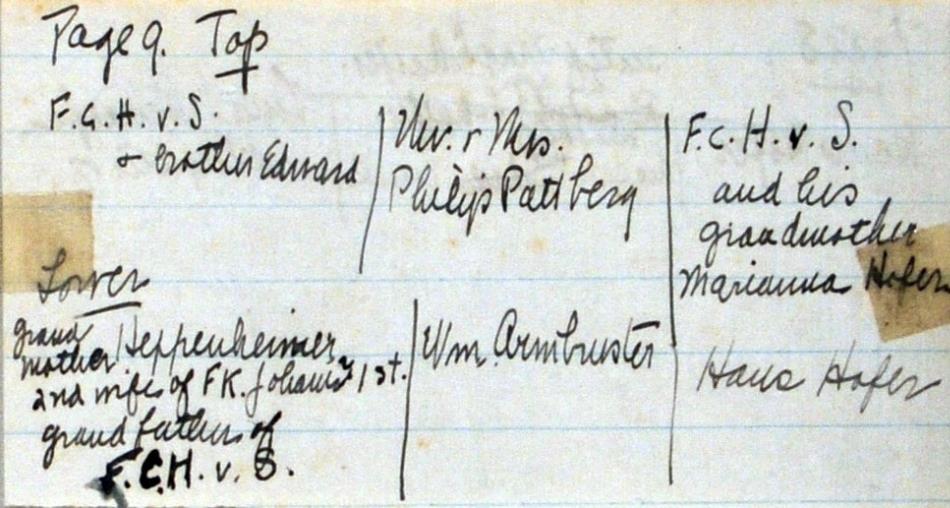 Page 9. Top
F.C.H.v.S.
+ brother Edward
Mr. + Mrs.
Philip Pattberg
F.C.H.v.S.
and his
grandmother
Marianna Hofer
Lower
grand
mother Heppenheimer
2nd wife of FK. 1st.
grandfather of
F.C.H.v.S.
Wm. Armbruster
Hans Hofer